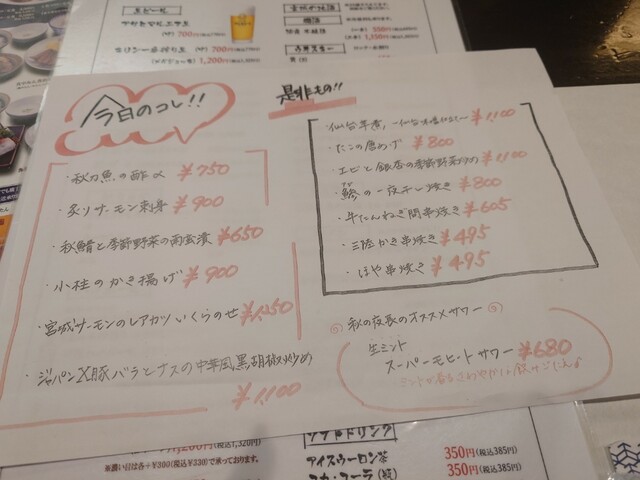 700円
1,200円
500円
1,150円
今日のコレ!!
・秋刀魚の酢〆 ¥750
・炙りサーモン刺身 ¥900
・秋鯖と季節野菜の南蛮漬 ¥650
・小柱のかき揚げ ¥900
・宮城サーモンのレアカツいくらのせ ¥1,250
・ジャパンX豚バラとナスの中華風黒胡椒炒め
¥1,100
是非もの!!
¥1,100
・たこの唐あげ ¥800
¥1,100
の一夜干し焼き ¥800
・牛たんねぎ間串焼き ¥605
・三陸かき串焼き ¥495
・ほや串焼き ¥495
秋の夜長のオススメサワー
生ミント
スーパーモヒートサワー ¥680
※濃い目は各+¥300(税込¥330)で承っております。
ソフトドリンク
アイスウーロン茶 350円(税込385円)
コカ・コーラ(瓶) 350円(税込385円)